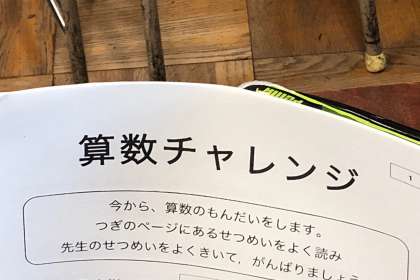 算数チャレンジ
1
今から、算数のもんだいをします。
つぎのページにあるせつめいをよく読み
先生のせつめいをよくきいて、がんばりましょう